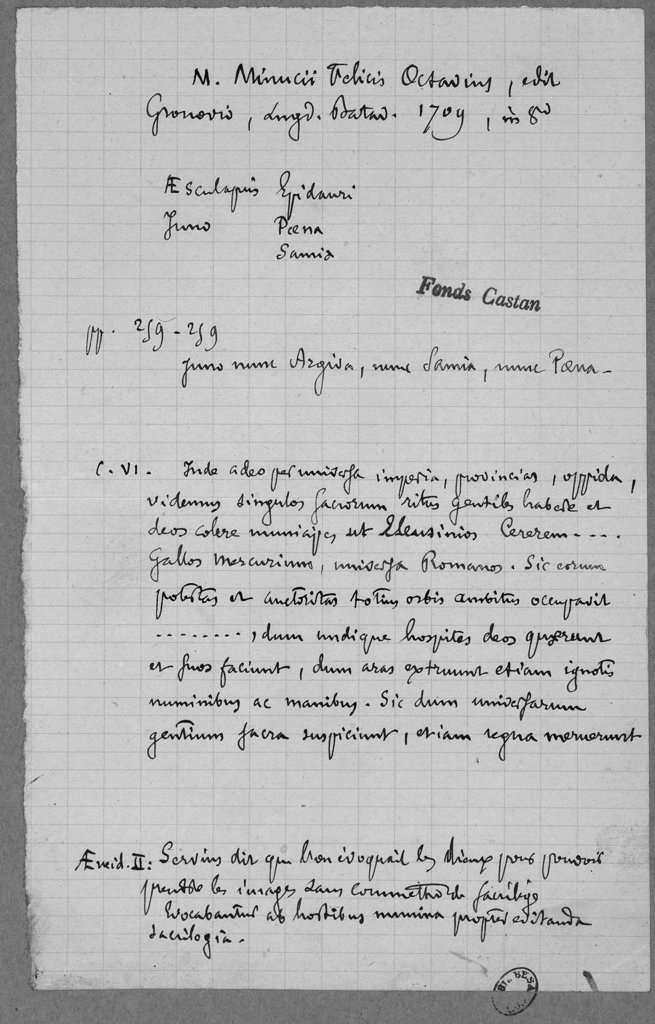 M. Minucii Felicis Octavius, edit
Gronovio, Lugd. Batav. 1709, in 8º
Æsculapius Epidauri
Juno Pœna
Samia
Fonds Castan
pp. 259-259
Juno nunc Argiva, nunc Samia, nunc Pœna -
C. VI. Inde adeo per universa imperia, provincias, oppida,
videmus singulos sacrorum ritus gentiles habere et
deos colere municipes ut Eleusinios Cererem ....
Gallos Mercurium, universa Romanos. Sic eorum
potestas et auctoritas totius orbis ambitus occupavit
........, dum undique hospites deos quærunt
et suos faciunt, dum aras extruunt etiam ignotis
numinibus ac manibus. Sic dum universarum
gentium sacra suspiciunt, etiam regna meruerunt
Æneid. II: Servius dit que l'on évoquait les dieux pour pouvoir
prendre les images sans commettre de sacrilège
Evocabantur ab hostibus numina propter evitanda
sacrilegia.